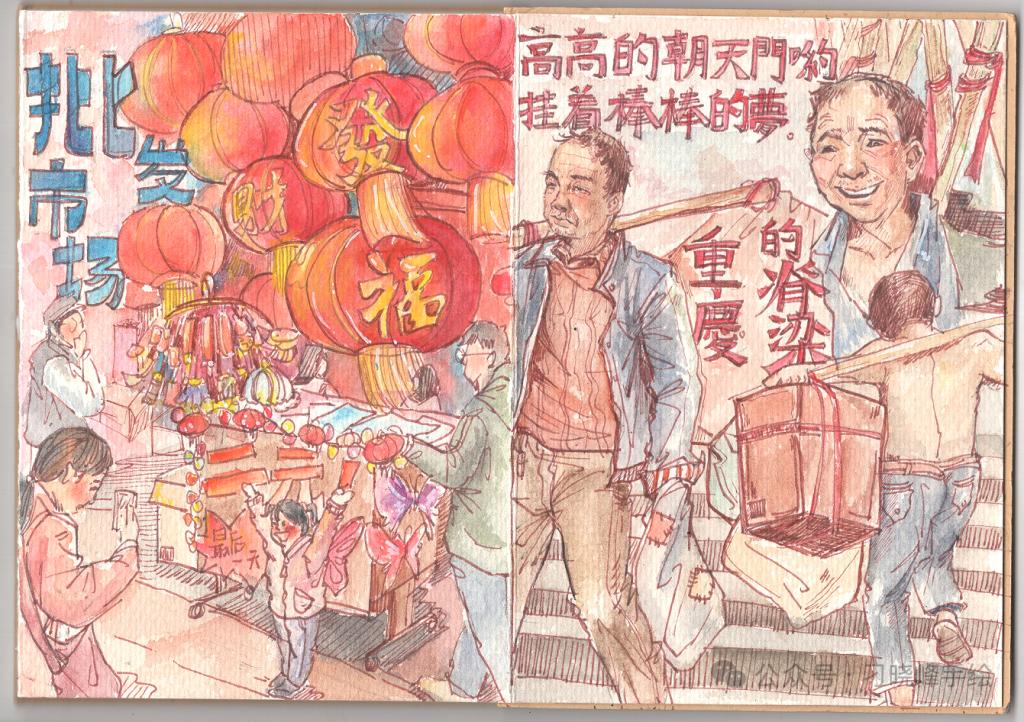 批
发
市
场
發
財
福
最后
一天
高高的朝天門喲
挂着棒棒的夢。
重慶
的脊梁
公众号·晓峰手绘